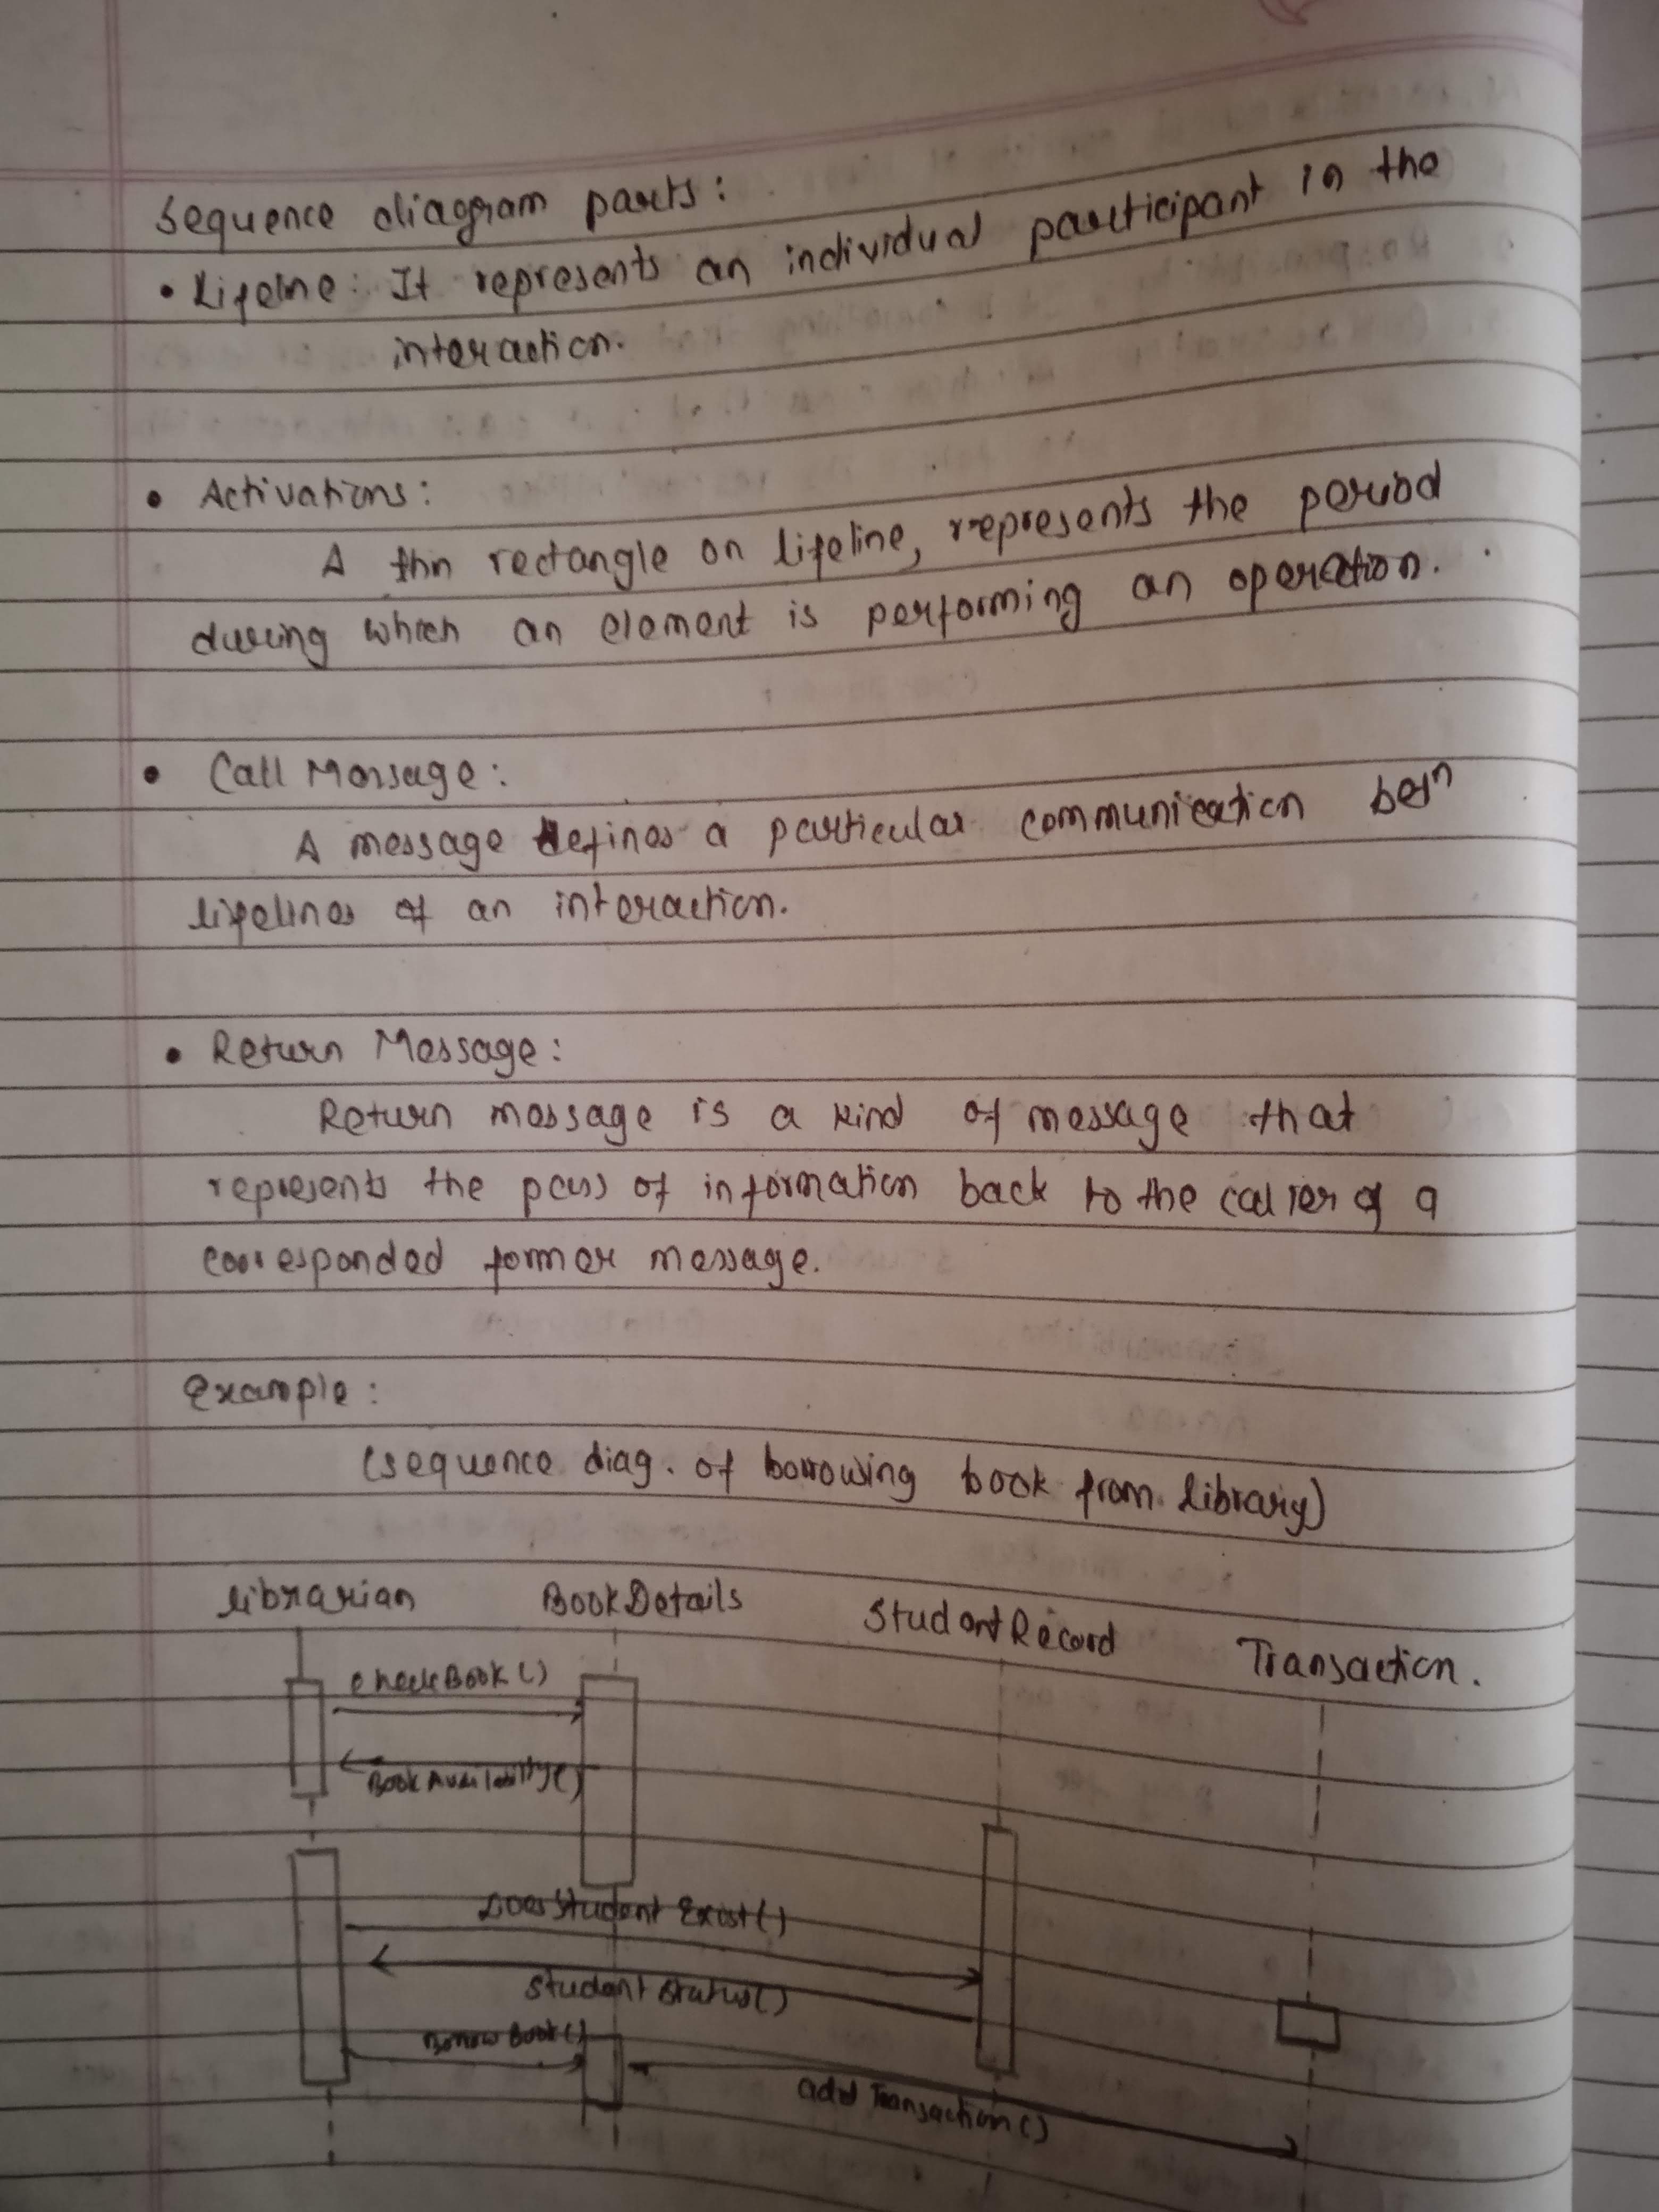 Sequence diagram parts:
• Lifeline: It represents an individual participant in the
interaction.
• Activations:
A thin rectangle on lifeline, represents the period
during which an element is performing an operation.
• Call Message:
A message defines a particular communication betn
lifelines of an interaction.
• Return Message:
Return message is a kind of message that
represents the pass of information back to the caller of a
corresponded former message.
Example:
(sequence diag. of borrowing book from library)
librarian BookDetails StudentRecord Transaction.
checkBook()
BookAvailability()
DoesStudent Exist()
Student Status()
Borrow Book()
add Transaction()